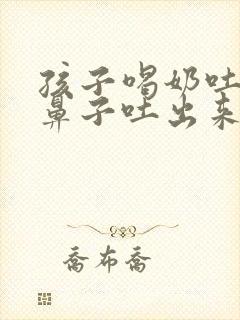 孩子喝奶吐
鼻子吐出来
乔布乔